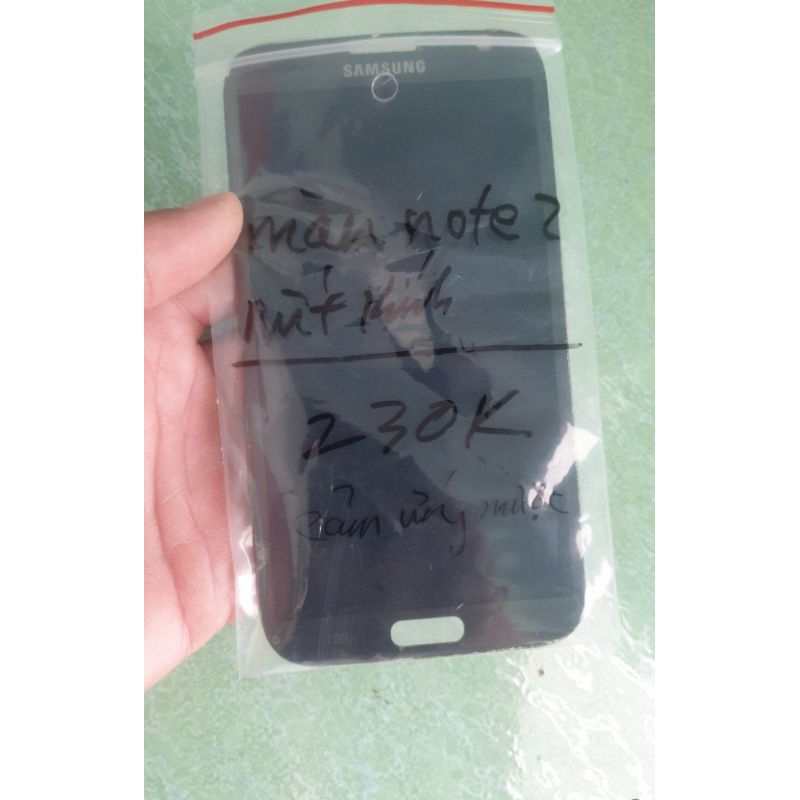 SAMSUNG
màn note 2
nứt kính
230K
cảm ứng mượt